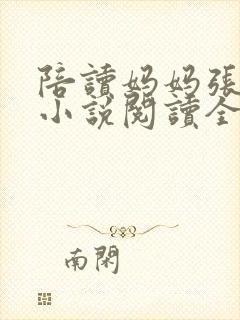 陪讀媽媽張
小說閱讀全
南閑